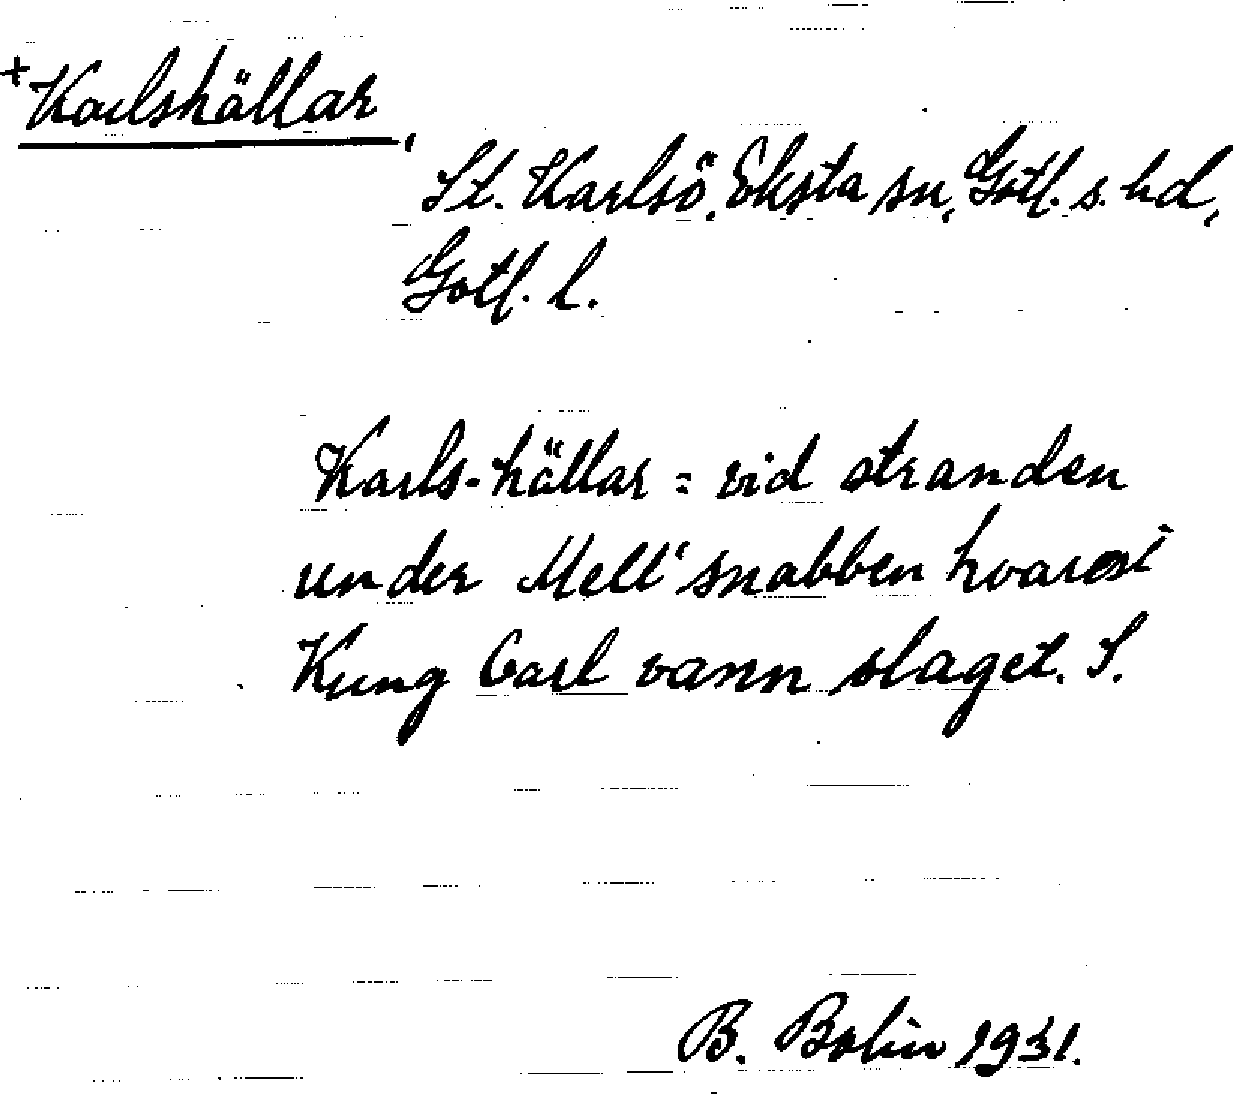 +Karlshällar,
St. Karlsö, Eksta sn, Gotl. s. hd,
Gotl. l.
Karls-hällar = vid stranden
under Mell'snabben hvarest
Kung Carl vann slaget. S.
B. Bolin 1931.